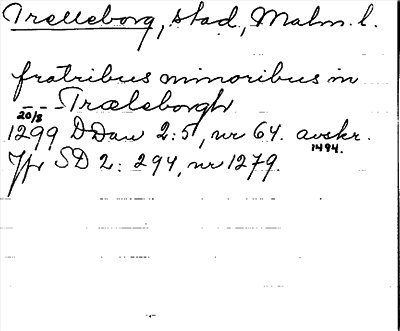 Trelleborg, stad, Malm. l.
fratribus minoribus in
--- Trælæborgh
20/8
1299 DDan 2:5, nr 64. avskr.
1494.
Jfr SD 2: 294, nr 1279.